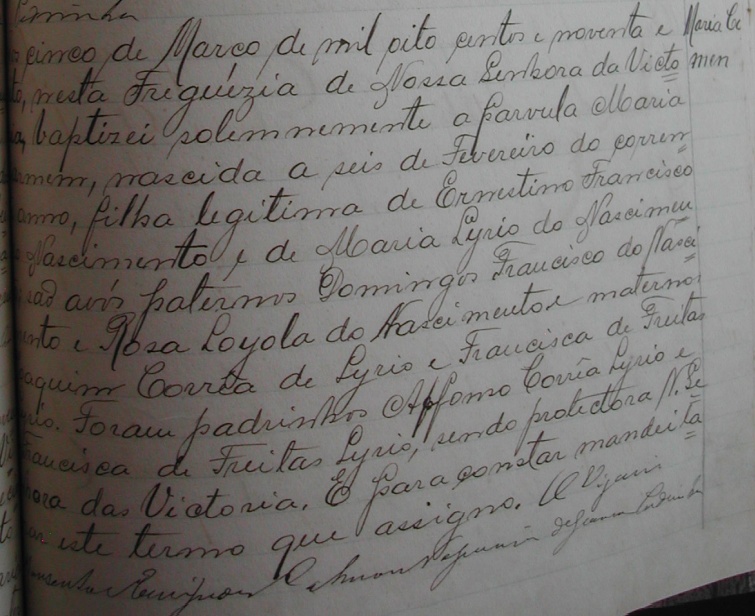 cinco de Março de mil oito centos e noventa e Maria Car
to, nesta Freguézia de Nossa Senhora da Victo men
a, baptizei solemnemente a parvula Maria
armem, nascida a seis de Fevereiro do corren
anno, filha legitima de Ernestino Francisco
Nascimento e de Maria Lyrio do Nascimen
são avós paternos Domingos Francisco do Nasci
ento e Rosa Loyola do Nascimento e maternos
oaquim Corrêa de Lyrio e Francisca de Freitas
yrio. Foram padrinhos Affonso Corrêa Lyrio e
rancisca de Freitas Lyrio, sendo protectora N. Se
hora das Victoria. E para constar mandei la
ar este termo que assigno. O Vigari